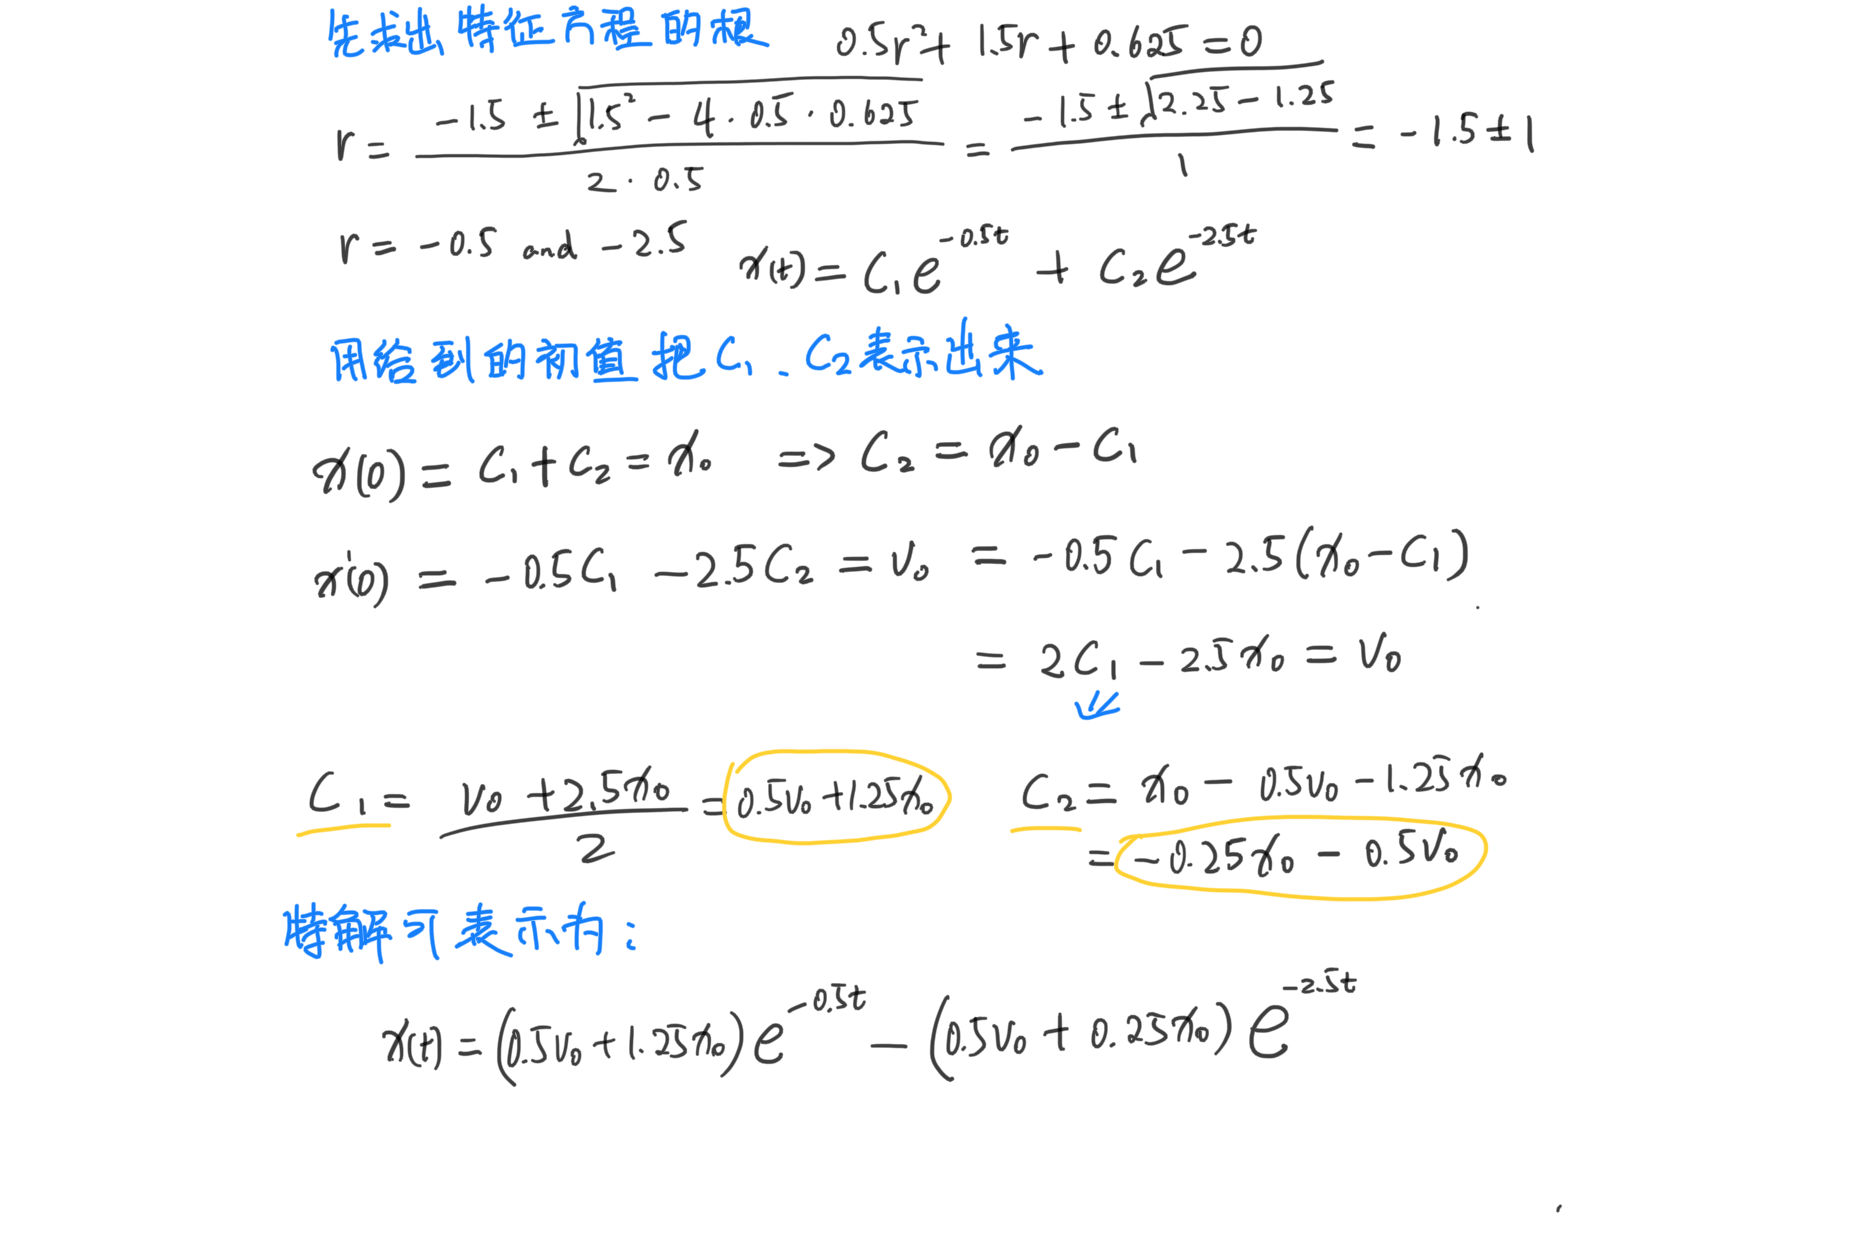 先求出特征方程的根 0.5r²+ 1.5r + 0.625 = 0
r = (-1.5 ± √(1.5² - 4 · 0.5 · 0.625)) / (2 · 0.5) = (-1.5 ± √(2.25 - 1.25)) / 1 = -1.5 ± 1
r = -0.5 and -2.5 x(t) = C₁e^(-0.5t) + C₂e^(-2.5t)
用给到的初值把C₁、C₂表示出来
x(0) = C₁ + C₂ = x₀ => C₂ = x₀ - C₁
x'(0) = -0.5C₁ - 2.5C₂ = v₀ = -0.5C₁ - 2.5(x₀ - C₁)
= 2C₁ - 2.5x₀ = v₀
C₁ = (v₀ + 2.5x₀) / 2 = 0.5v₀ + 1.25x₀ C₂ = x₀ - 0.5v₀ - 1.25x₀
= -0.25x₀ - 0.5v₀
特解可表示为：
x(t) = (0.5v₀ + 1.25x₀)e^(-0.5t) - (0.5v₀ + 0.25x₀)e^(-2.5t)